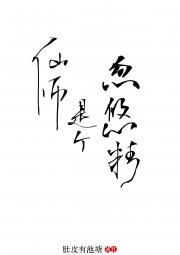 仙师
是个
忽悠精
肚皮有池塘